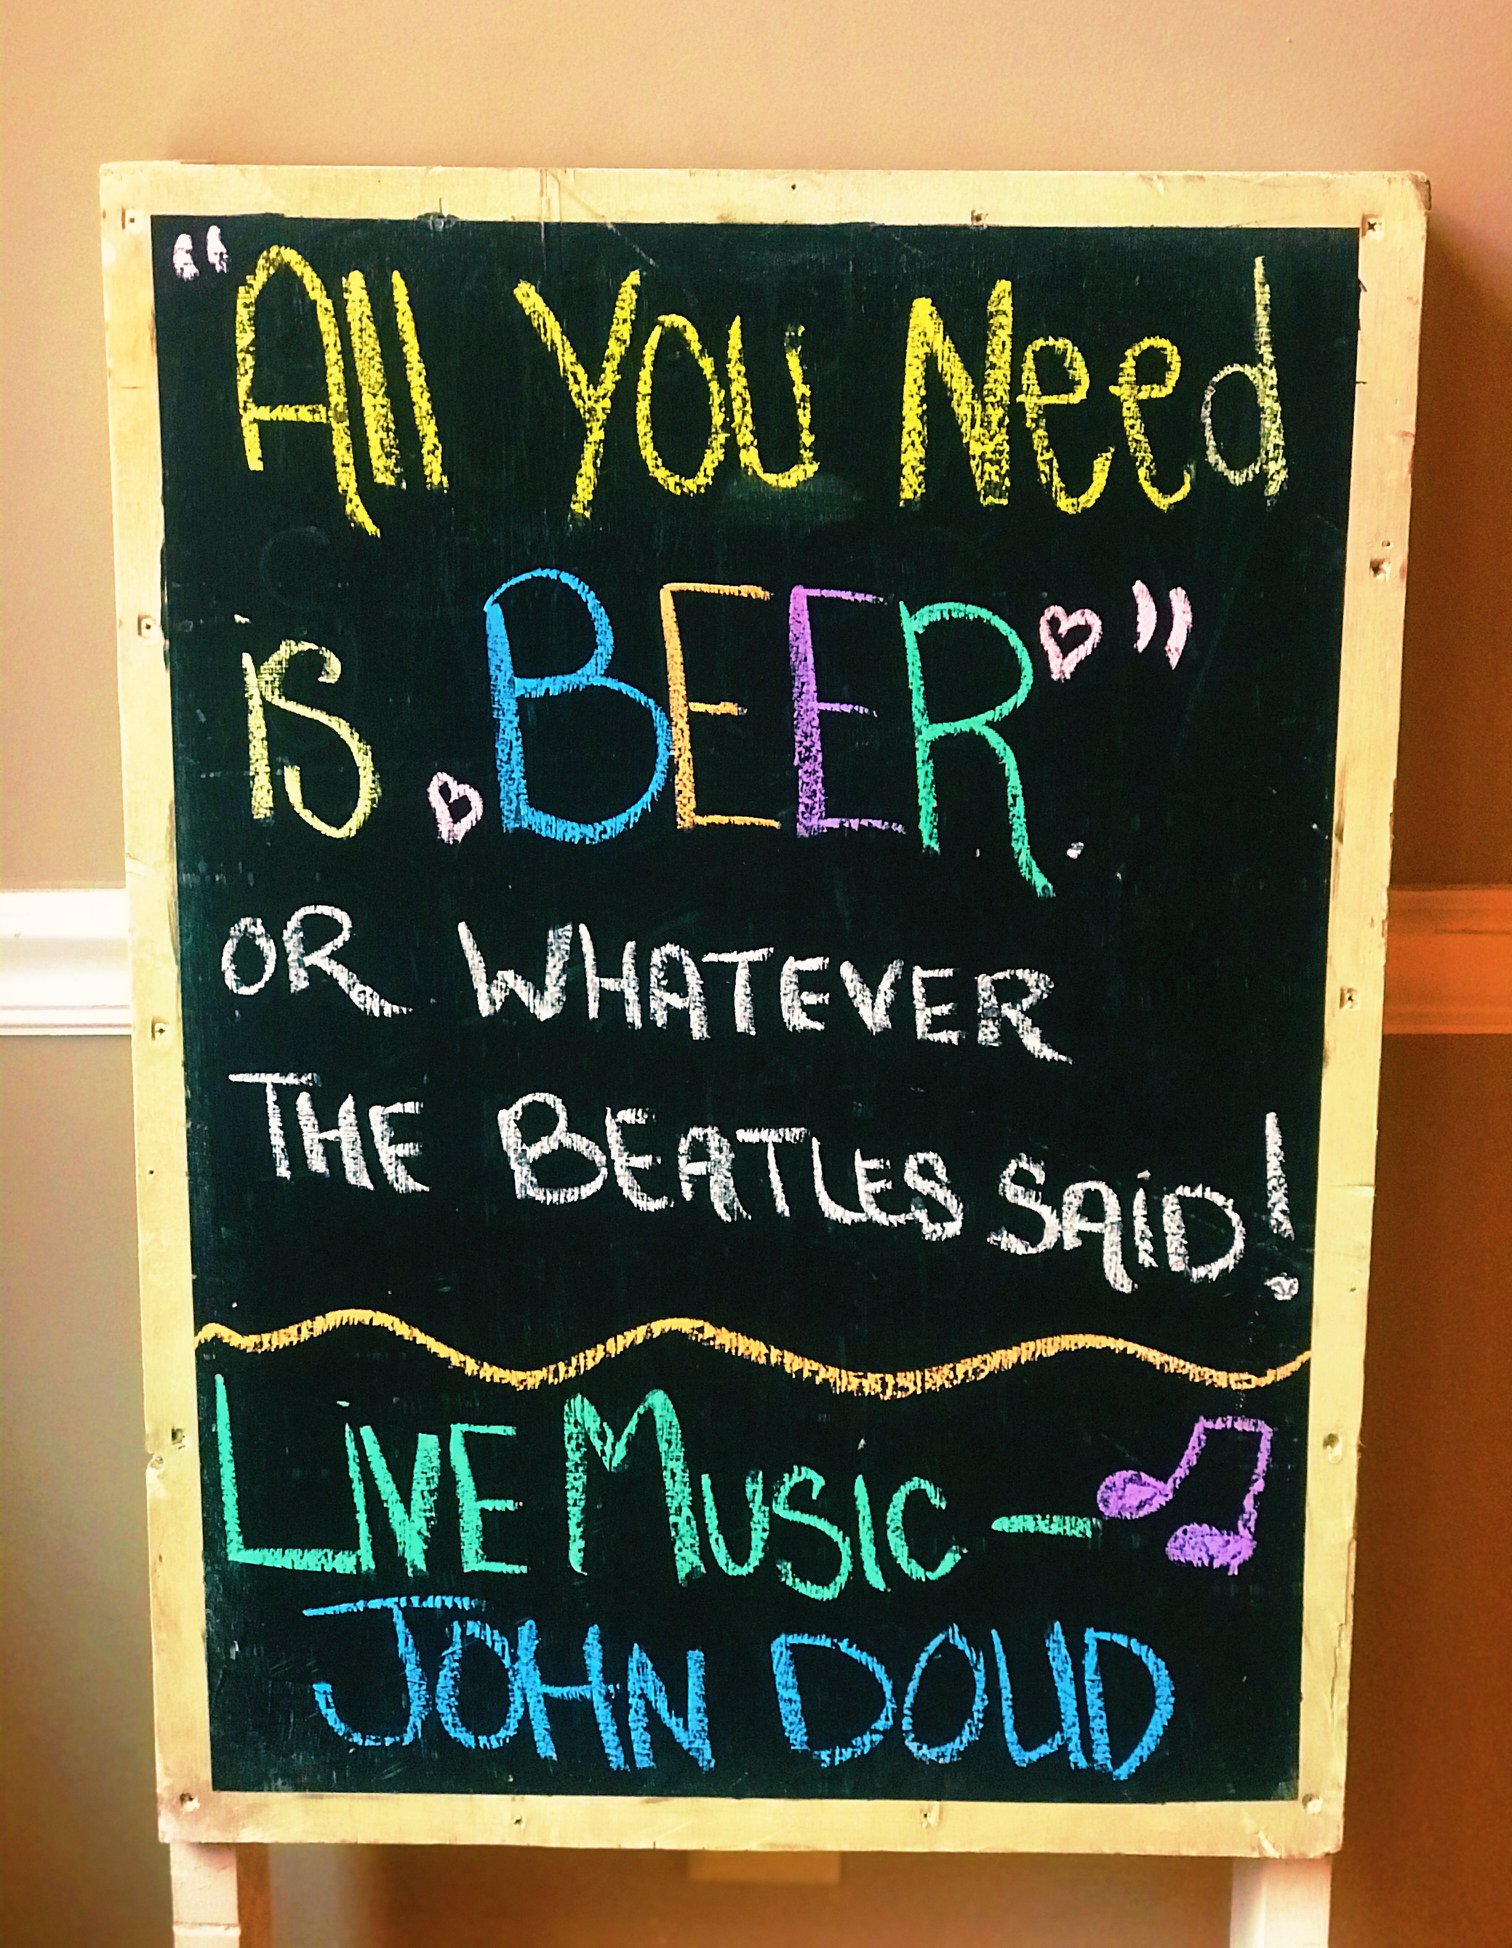 "All You Need
is BEER."
OR WHATEVER
THE BEATLES SAiD!
LiVE MUSIC —
JOHN DOUD